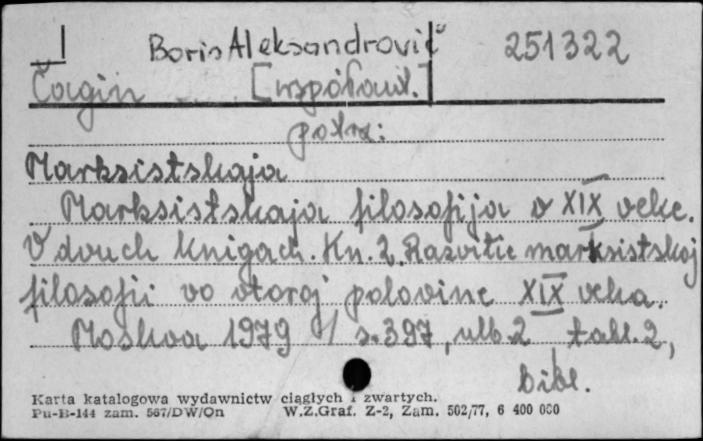 Boris Aleksandrovič 251322
Čagin [współaut.]
patrz:
Marksistskaja
Marksistskaja filosofija v XIX veke.
V dvuch knigach. Kn. 2. Razvitie marksistskoj
filosofii vo vtoroj polovine XIX veka.
Moskva 1979 s. 397, nlb. 2 tabl. 2,
bibl.
Karta katalogowa wydawnictw ciągłych i zwartych.
Pu-B-144 zam. 567/DW/On W.Z.Graf. Z-2, Zam. 502/77, 6 400 000